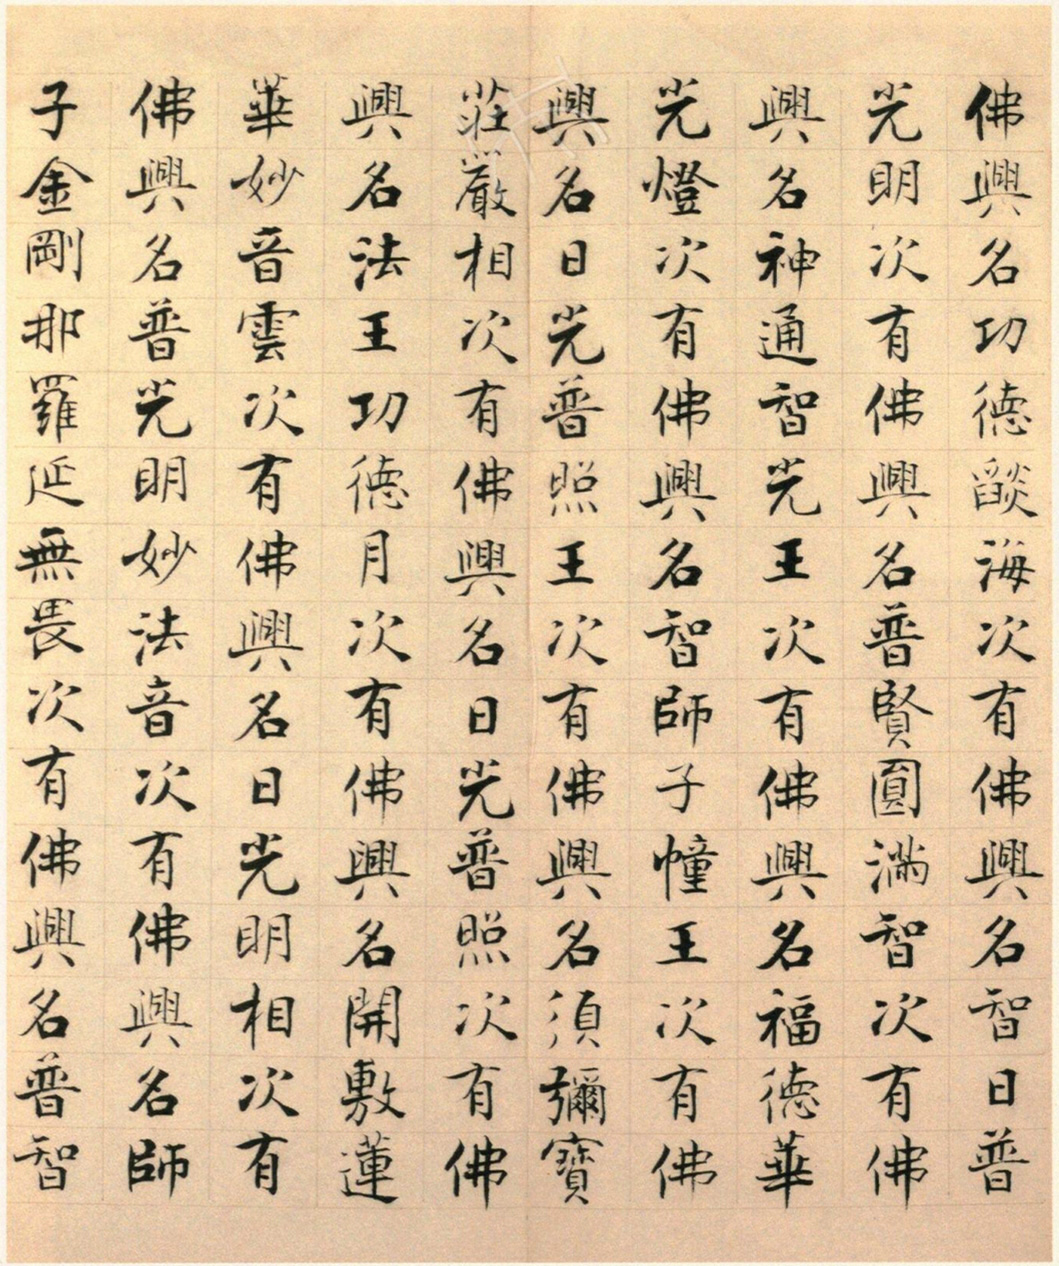 佛興名功德𦦨海次有佛興名智日普
光明次有佛興名普賢圓滿智次有佛
興名神通智光王次有佛興名福德華
光燈次有佛興名智師子幢王次有佛
興名日光普照王次有佛興名須彌寶
莊嚴相次有佛興名日光普照次有佛
興名法王功德月次有佛興名開敷蓮
華妙音雲次有佛興名日光明相次有
佛興名普光明妙法音次有佛興名師
子金剛那羅延無畏次有佛興名普智